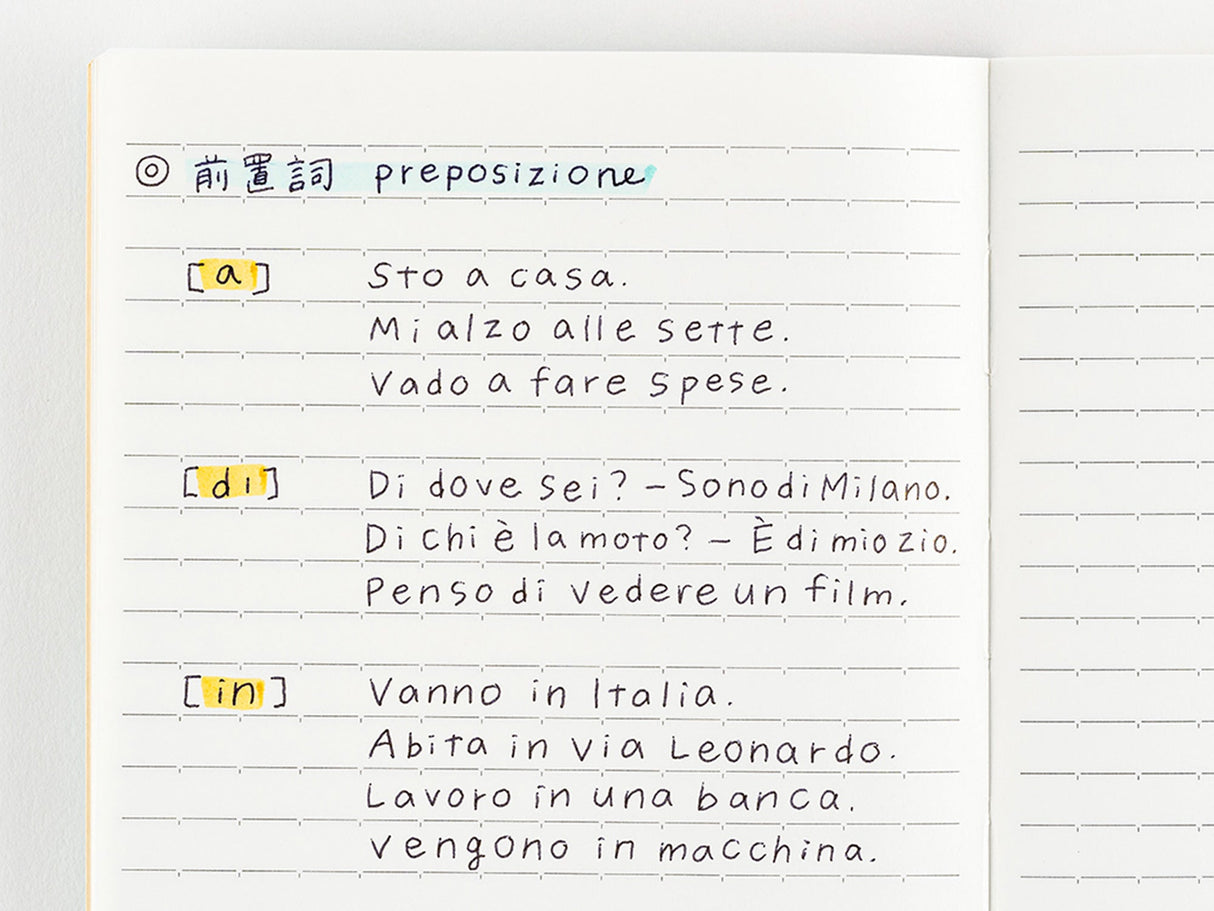 ◎ 前置詞 preposizione
[a] Sto a casa.
Mi alzo alle sette.
Vado a fare spese.
[di] Di dove sei? – Sono di Milano.
Di chi è la moto? – È di mio zio.
Penso di vedere un film.
[in] Vanno in Italia.
Abita in via Leonardo.
Lavoro in una banca.
vengono in macchina.